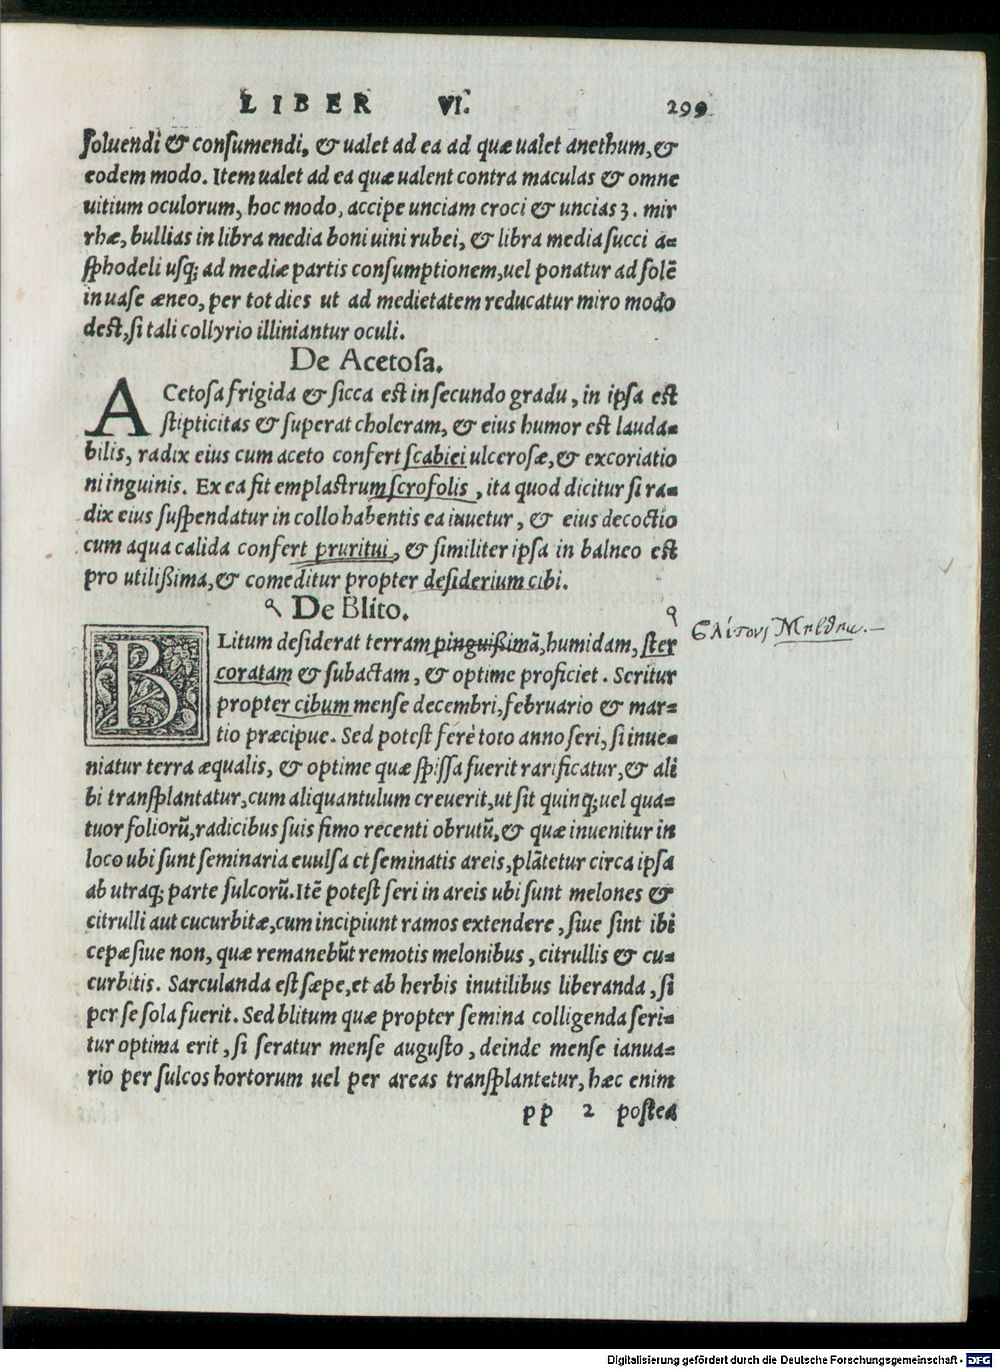 LIBER VI. 299
ſoluendi & conſumendi, & ualet ad ea ad quæ ualet anethum, &
eodem modo. Item ualet ad ea quæ ualent contra maculas & omne
uitium oculorum, hoc modo, accipe unciam croci & uncias 3. mir
rhæ, bullias in libra media boni uini rubei, & libra media ſucci a=
ſphodeli uſq; ad mediæ partis conſumptionem, uel ponatur ad ſolẽ
in uaſe æneo, per tot dies ut ad medietatem reducatur miro modo
deſt, ſi tali collyrio illiniantur oculi.
De Acetoſa.
ACetoſa frigida & ſicca eſt in ſecundo gradu, in ipſa eſt
ſtipticitas & ſuperat choleram, & eius humor eſt lauda=
bilis, radix eius cum aceto confert ſcabiei ulceroſæ, & excoriatio
ni inguinis. Ex ea fit emplaſtrum ſcrofolis, ita quod dicitur ſi ra=
dix eius ſuſpendatur in collo habentis ea iuuetur, & eius decoctio
cum aqua calida confert pruritui, & ſimiliter ipſa in balneo eſt
pro utilißima, & comeditur propter deſiderium cibi.
De Blito.
BLitum deſiderat terram pinguißimã, humidam, ſter
coratam & ſubactam, & optime proficiet. Seritur
propter cibum menſe decembri, februario & mar=
tio præcipue. Sed poteſt ferè toto anno ſeri, ſi inue=
niatur terra æqualis, & optime quæ ſpiſſa fuerit rarificatur, & ali
bi tranſplantatur, cum aliquantulum creuerit, ut ſit quinq; uel qua=
tuor foliorũ, radicibus ſuis fimo recenti obrutũ, & quæ inuenitur in
loco ubi ſunt ſeminaria euulſa et ſeminatis areis, plãtetur circa ipſa
ab utraq; parte ſulcorũ. Itẽ poteſt ſeri in areis ubi ſunt melones &
citrulli aut cucurbitæ, cum incipiunt ramos extendere, ſiue ſint ibi
cepæ ſiue non, quæ remanebũt remotis melonibus, citrullis & cu=
curbitis. Sarculanda eſt ſæpe, et ab herbis inutilibus liberanda, ſi
per ſe ſola fuerit. Sed blitum quæ propter ſemina colligenda ſeri=
tur optima erit, ſi ſeratur menſe auguſto, deinde menſe ianua=
rio per ſulcos hortorum uel per areas tranſplantetur, hæc enim
pp 2 poſtea
Digitalisierung gefördert durch die Deutsche Forschungsgemeinschaft - DFG